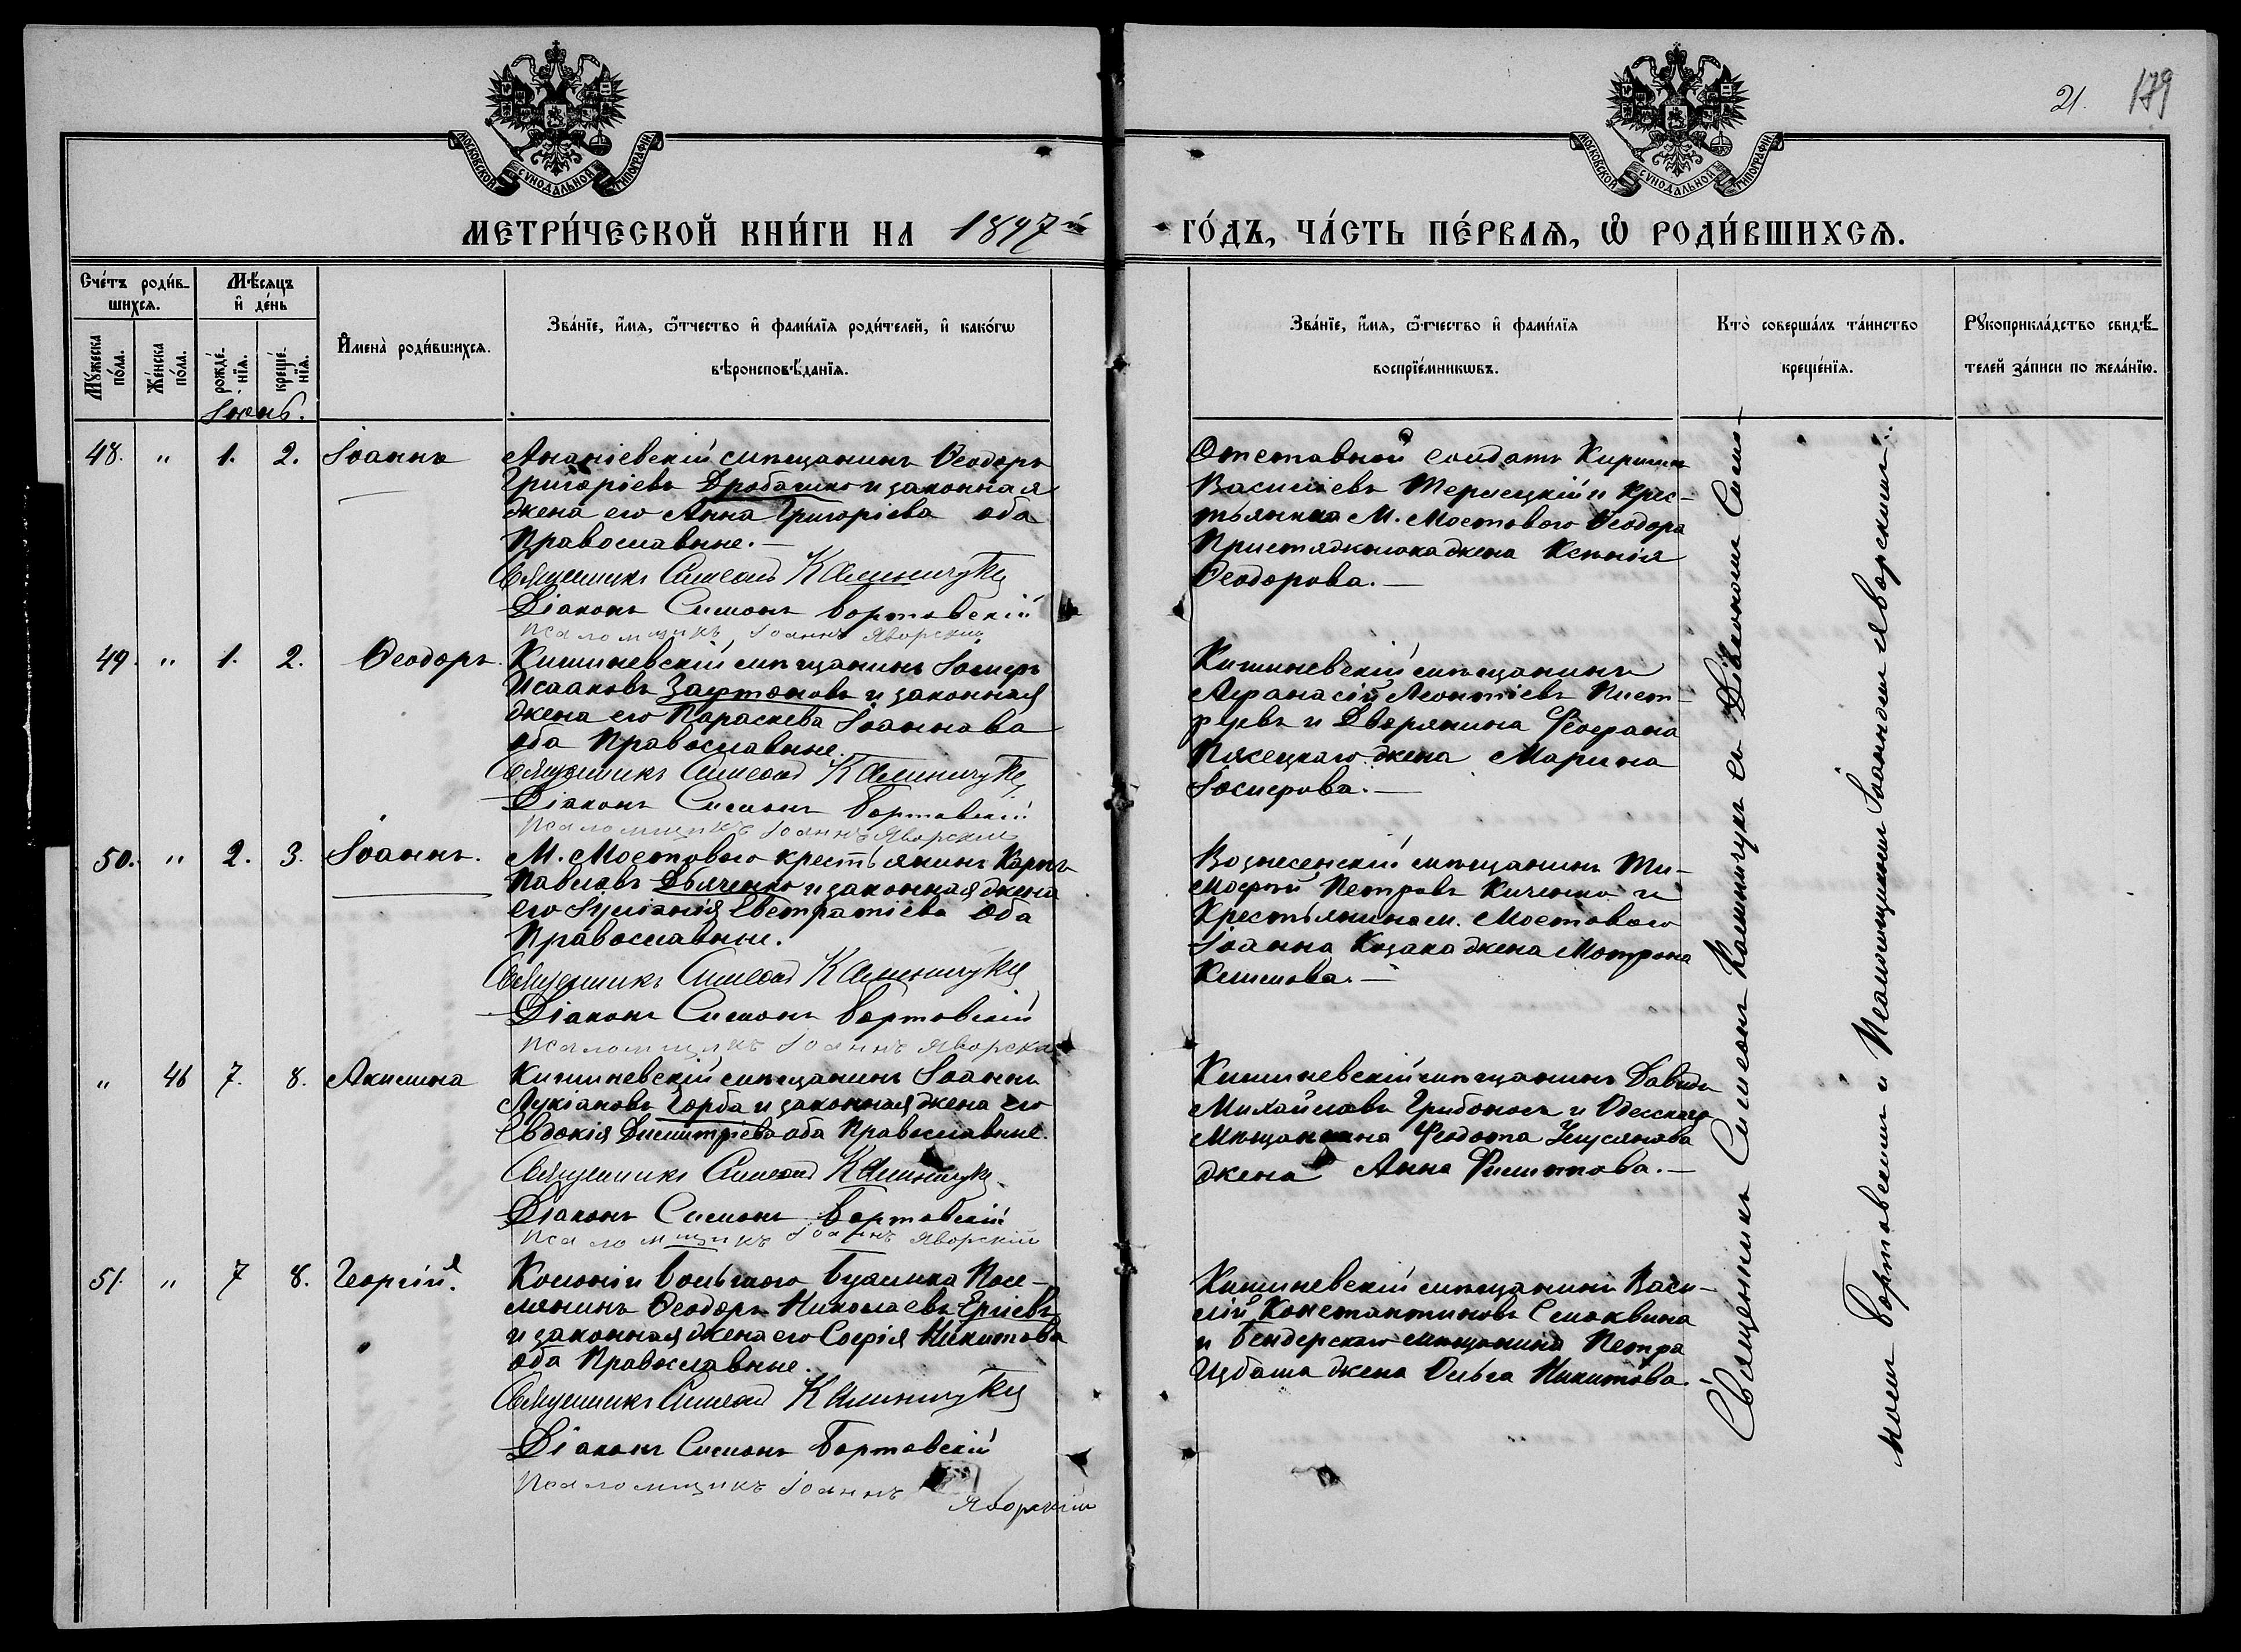 21. 179
МОСКОВСКОЙ СѴНОДАЛЬНОЙ ТИПОГРАФІИ
МОСКОВСКОЙ СѴНОДАЛЬНОЙ ТИПОГРАФІИ
МЕТРИ́ЧЕСКОЙ КНИ́ГИ НА 1897й
ГО́ДЪ, ЧА́СТЬ ПЕ́РВАѦ, Ѡ РОДИ́ВШИХСѦ.
Сче́тъ роди́в-
шихсѧ.
Мѣ́сѧцъ
и҆ де́нь
Мꙋ́жеска
по́ла.
Же́нска
по́ла.
рожде́-
нїѧ.
креще́-
нїѧ.
И҆мена̀ роди́вшихсѧ.
Зва́нїе, и҆́мѧ, ѻ҆́тчество и҆ фами́лїѧ роди́телей, и҆ како́гѡ
вѣроисповѣ́данїѧ.
Зва́нїе, и҆́мѧ, ѻ҆́тчество и҆ фами́лїѧ
воспрїе́мникѡвъ.
Кто̀ соверша́лъ та́инство
креще́нїѧ.
Рꙋкоприкла́дство свидѣ́-
телей за́писи по жела́нїю.
Іюнь.
48. " 1. 2. Іоаннъ
Ананіевскій мѣщанинъ Ѳеодоръ
Григоріевъ и законная
жена его Анна Григоріева оба
Православные.—
Священникъ Симеонъ Калинчукъ
Діаконъ Симонъ Бортовскій
Псаломщикъ Іоаннъ Яворскій
Отставной солдатъ Кириллъ
Васильевъ Терлецкій и крес-
тьянина М. Мостового Ѳеодора
жена Ксенія
Ѳеодорова.—
49. " 1. 2. Ѳеодоръ.
Кишиневскій мѣщанинъ Іосифъ
Исааковъ Зафтоновъ и законная
жена его Параскева Іоаннова
оба Православные.
Священникъ Симеонъ Калинчукъ
Діаконъ Симонъ Бортовскій
Псаломщикъ Іоаннъ Яворскій
Кишиневскій мѣщанинъ
Аѳанасій Леонтіевъ Пист-
и Дворянина Ѳеофана
Пясецкаго жена Марина
Іосифова.—
50. " 2. 3. Іоаннъ.
М. Мостового крестьянинъ Карпъ
Павловъ Дьяченко и законная жена
его Іуліанія Евстратіева оба
Православные.
Священникъ Симеонъ Калинчукъ
Діаконъ Симонъ Бортовскій
Псаломщикъ Іоаннъ Яворскій
Вознесенскій мѣщанинъ Ти-
моѳей Петровъ и
Крестьянина м. Мостового
Іоанна Козака жена Мотрона
Климова.—
" 46 7. 8. Акилина
Кишиневскій мѣщанинъ Іоаннъ
Лукіановъ Горба и законная жена его
Евдокія Димитріева оба Православные.
Священникъ Симеонъ Калинчукъ
Діаконъ Симонъ Бортовскій
Псаломщикъ Іоаннъ Яворскій
Кишиневскій мѣщанинъ Давидъ
Михайловъ Грибоносъ и Одесскаго
Мѣщанина Ѳеодота
жена Анна Филиппова.—
51. " 7 8. Георгій.
Колоніи Большого Буялыка Посе-
лянинъ Ѳеодоръ Николаевъ Ерліевъ
и законная жена его Софія Никитова
оба Православные.
Священникъ Симеонъ Калинчукъ
Діаконъ Симонъ Бортовскій
Псаломщикъ Іоаннъ
Яворскій
Кишиневскій мѣщанинъ Васи-
лій Константиновъ Смоквина
и Бендерскаго мѣщанина Петра
жена Ольга Никитова.
Священникъ Симеонъ Калинчукъ съ Діакономъ Симо-
номъ Бортовскимъ и Псаломщикомъ Іоанномъ Яворскимъ.